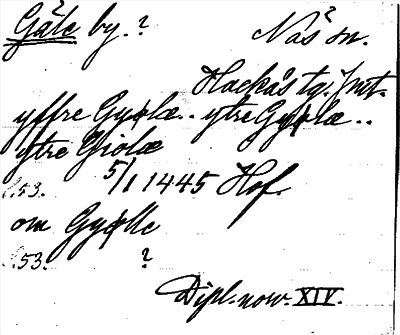 Gåle by.? Näs sn.
Hackås tg. Jmt.
yffre Gyølæ.. ytre Gyølæ..
ytre Giolæ
s. 53. 5/1 1445 Hof.
om Gyølle
s. 53. ?
Dipl. norv. XIV.